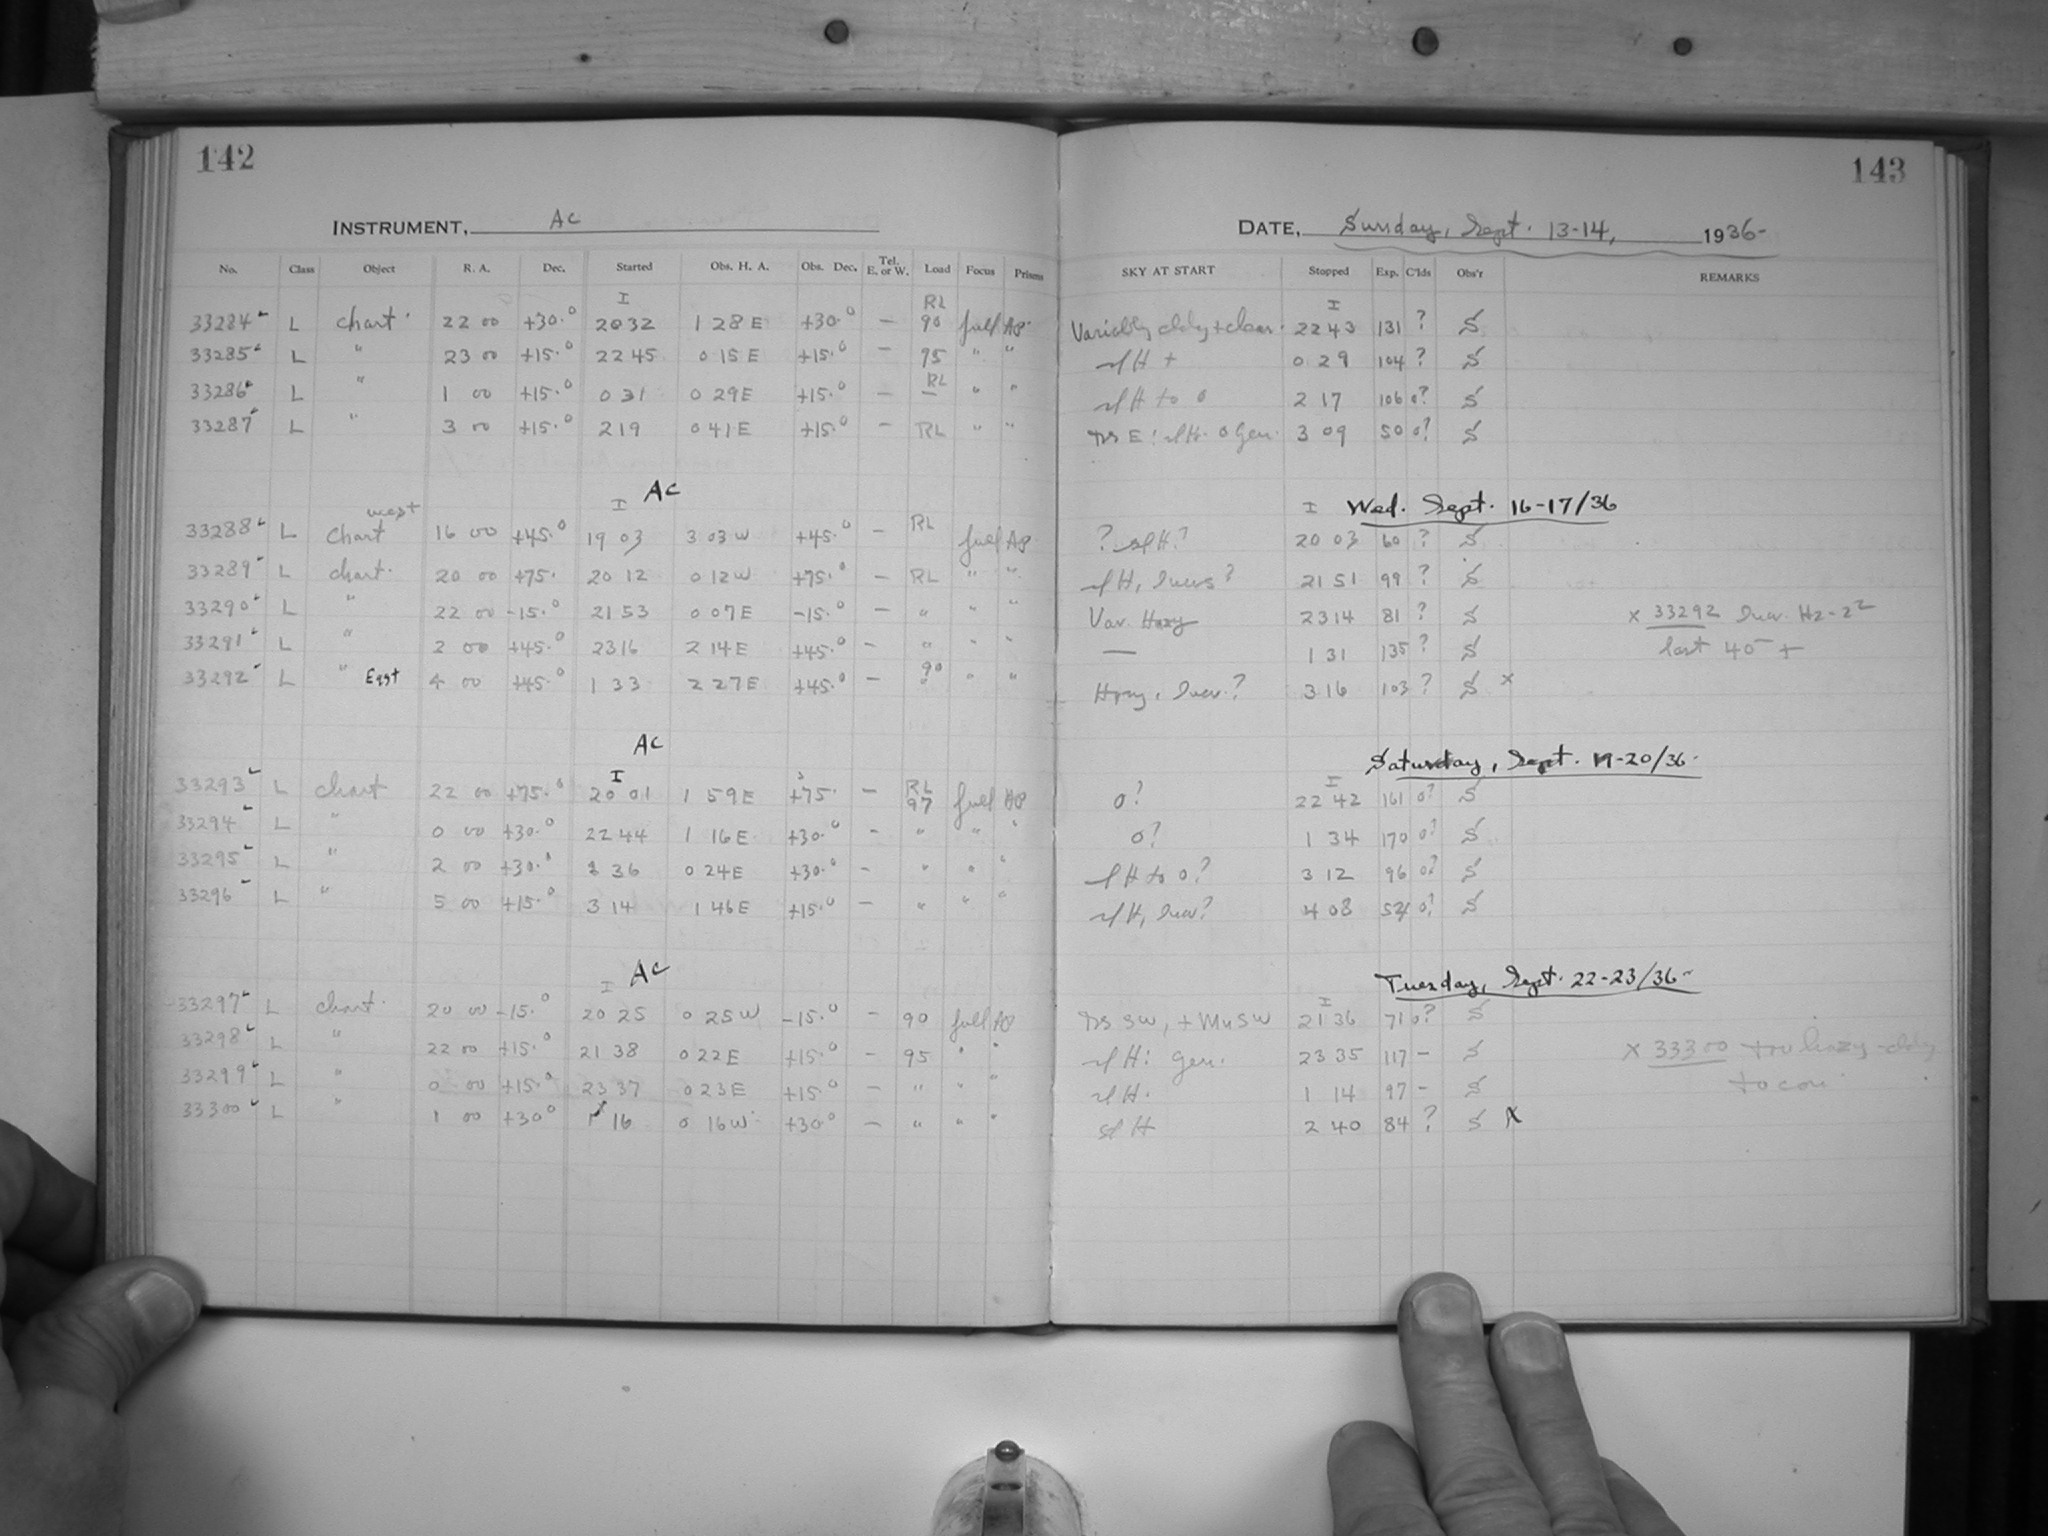 142
INSTRUMENT, AC
No. Class Object R. A. Dec. Started Obs. H. A. Obs. Dec. Tel. E. or W. Load Focus Prisms
I RL
33284 L chart 22 00 +30.0 2032 1 28 E +30.0 — 90 full AP
33285 L " 23 00 +15.0 22 45 0 15 E +15.0 — 95 " "
33286 L " 1 00 +15.0 0 31 0 29E +15.0 — RL — " "
33287 L " 3 00 +15.0 2 19 0 41 E +15.0 — RL " "
AC
I
33288 L chart west 16 00 +45.0 19 03 3 03 W +45.0 — RL full AP
33289 L chart. 20 00 +75. 20 12 0 12 W +75.0 — RL " "
33290 L " 22 00 -15.0 21 53 0 07 E -15.0 — " " "
33291 L " 2 00 +45.0 23 16 2 14 E +45.0 — " " "
33292 L " East 4 00 +45.0 1 33 2 27 E +45.0 — 90 " " "
AC
I
33293 L chart 22 00 +75.0 20 01 1 59 E +75. — RL 97 full AP
33294 L " 0 00 +30.0 22 44 1 16 E +30.0 — " " "
33295 L " 2 00 +30.0 1 36 0 24E +30.0 — " " "
33296 L " 5 00 +15.0 3 14 1 46 E +15.0 — " " "
AC
I
33297 L chart. 20 00 -15.0 20 25 0 25 W -15.0 — 90 full AP
33298 L " 22 00 +15.0 21 38 0 22 E +15.0 — 95 " "
33299 L " 0 00 +15.0 23 37 0 23 E +15.0 — " " "
33300 L " 1 00 +30.0 1 16 0 16 W +30.0 — " " "
143
DATE, Sunday, Sept. 13-14, 1936-
SKY AT START Stopped Exp. C'lds Obs'r REMARKS
I
Variably cldy + clear. 22 43 131 ? S
sl H + 0 29 104 ? S
sl H to 0 2 17 106 0? S
E: sl H. 0 Gen. 3 09 50 0? S
I Wed. Sept. 16-17/36
? sl H? 20 03 60 ? S
sl H, ? 21 51 99 ? S
Var. Hazy 23 14 81 ? S x 33292 Hz-2
— 1 31 135 ? S last 40 +
Hazy, ? 3 16 103 ? S x
Saturday, Sept. 19-20/36-
I
0? 22 42 161 0? S
0? 1 34 170 0? S
sl H to 0? 3 12 96 0? S
sl H, ? 4 08 54 0? S
Tuesday, Sept. 22-23/36-
I
SW, + SW 21 36 71 0? S
sl H: gen. 23 35 117 — S x 33300 too hazy - cldy
sl H. 1 14 97 — S to con.
sl H 2 40 84 ? S X